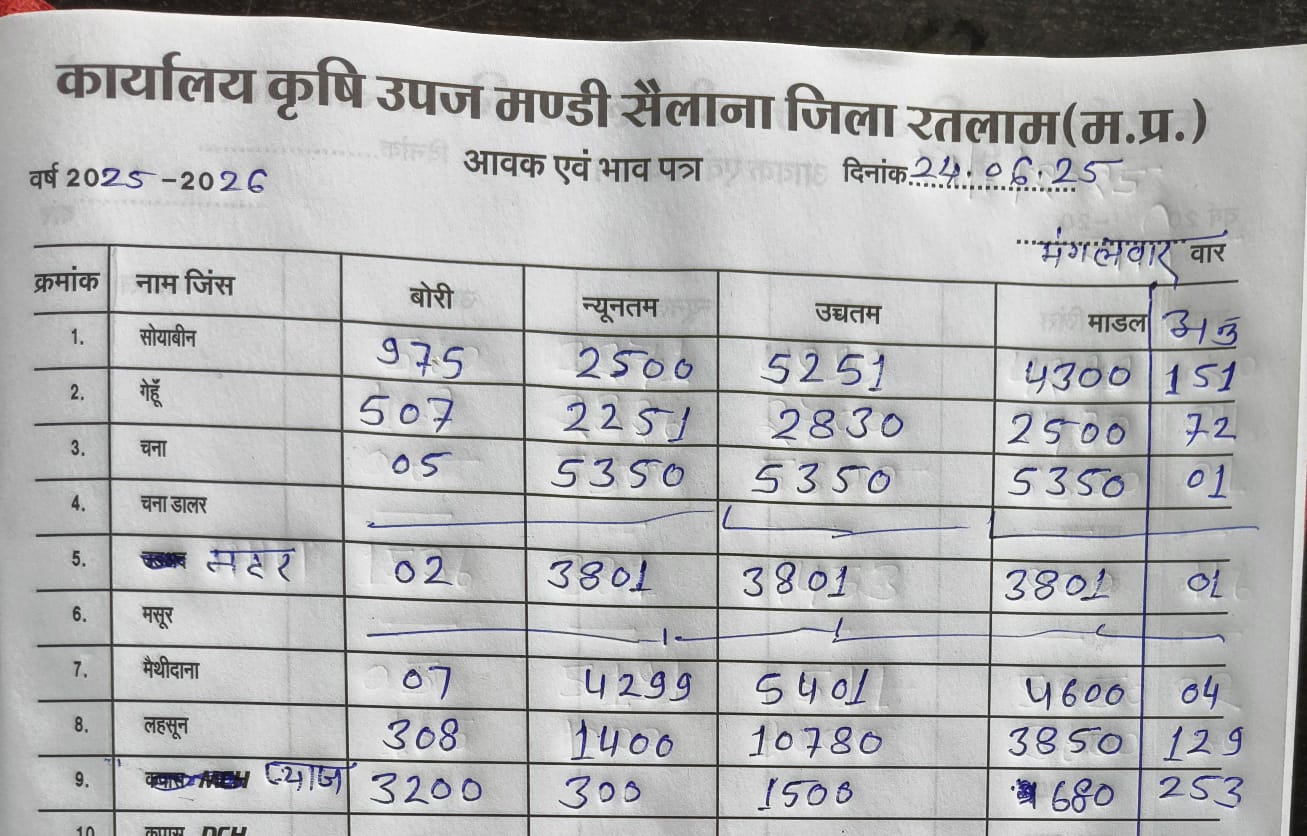 कार्यालय कृषि उपज मण्डी सैलाना जिला रतलाम(म.प्र.)
वर्ष 2025-2026 आवक एवं भाव पत्र दिनांक 24.06.25
मंगलवार वार
क्रमांक नाम जिंस बोरी न्यूनतम उच्चतम माडल अनु
1. सोयाबीन 975 2500 5251 4300 151
2. गेहूँ 507 2251 2830 2500 72
3. चना 05 5350 5350 5350 01
4. चना डालर
5. मटर 02 3801 3801 3801 01
6. मसूर
7. मैथीदाना 07 4299 5401 4600 04
8. लहसून 308 1400 10780 3850 129
9. प्याज 3200 300 1500 680 253
10 कपास DCH